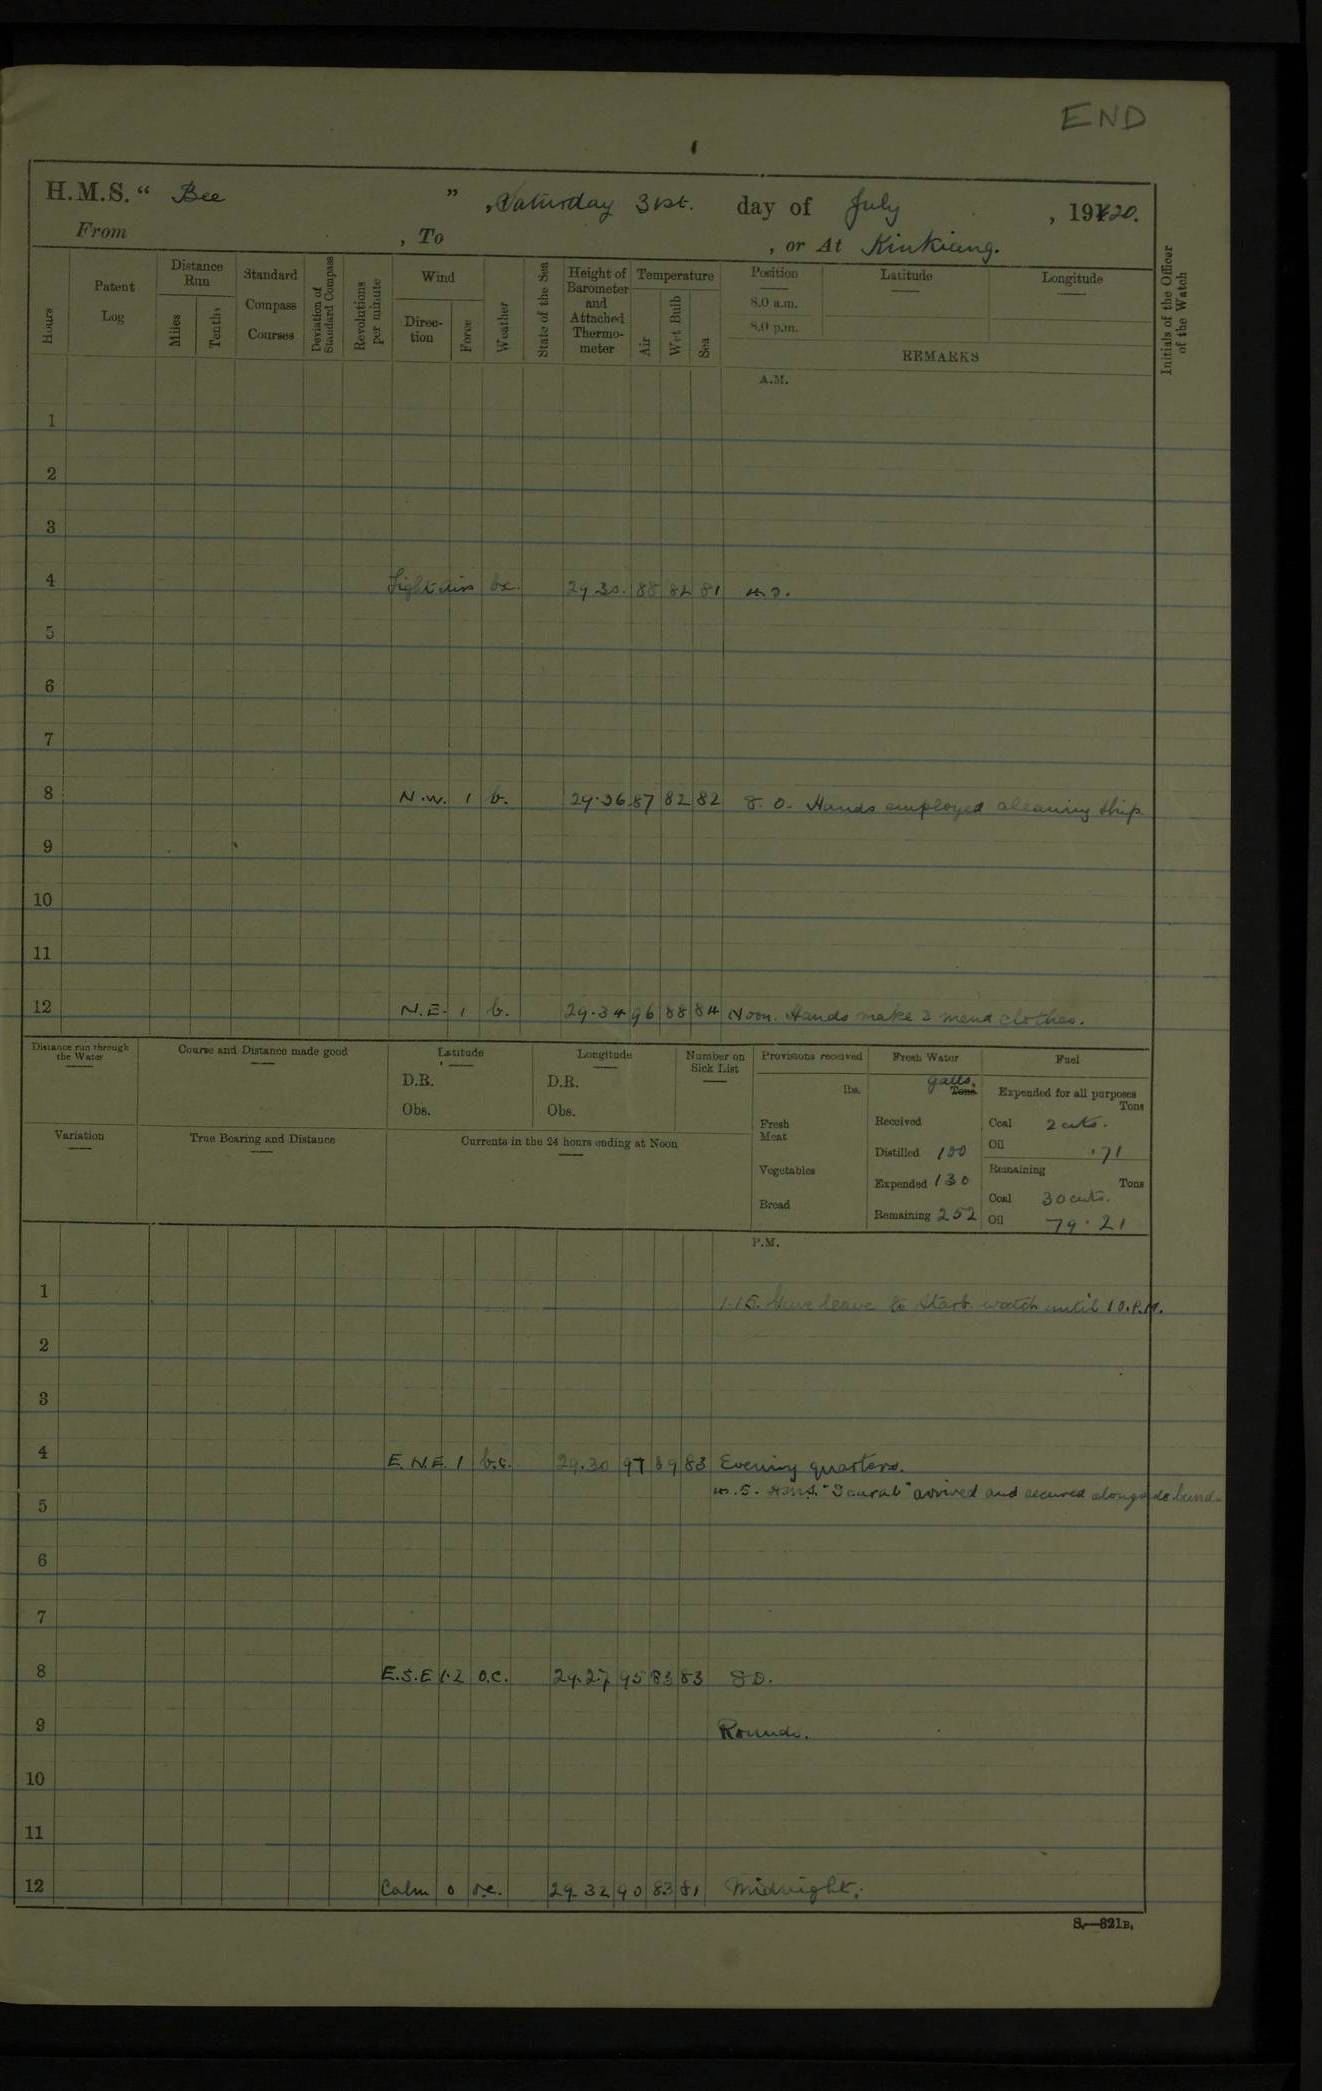 END
H.M.S. " Bee " , Saturday 31st. day of July , 1920.
From , To , or At Kinkiang.
Hours
Patent Log
Distance Run
Miles
Tenths
Standard Compass Courses
Deviation of Standard Compass
Revolutions per minute
Wind
Direction
Force
Weather
State of the Sea
Height of Barometer and Attached Thermometer
Temperature
Air
Wet Bulb
Sea
Position
8.0 a.m.
8.0 p.m.
Latitude
Longitude
REMARKS
Initials of the Officer of the Watch
A.M.
1
2
3
4 Light airs bc. 29.30. 88 82 81
5
6
7
8 N.W. 1 b. 29.36 87 82 82 8.0. Hands employed cleaning ship
9
10
11
12 N.E. 1 b. 29.34 96 88 84 Noon. Hands make & mend clothes.
Distance run through the Water
Course and Distance made good
Latitude
D.R.
Obs.
Longitude
D.R.
Obs.
Number on Sick List
Provisions received
lbs.
Fresh Meat
Vegetables
Bread
Fresh Water
galls.
Tons
Received
Distilled 100
Expended 130
Remaining 252
Fuel
Expended for all purposes
Tons
Coal 2 cwts.
Oil .71
Remaining
Tons
Coal 30 cwts.
Oil 79.21
Variation
True Bearing and Distance
Currents in the 24 hours ending at Noon
P.M.
1 1.15. Gave leave to Starb. watch until 10.P.M.
2
3
4 E.N.E. 1 b.c. 29.30 97 89 83 Evening quarters.
H.M.S. "Scarab" arrived and secured alongside bund.
5
6
7
8 E.S.E 1.2 o.c. 29.27 95 83 83
9 Rounds.
10
11
12 Calm 0 o.c. 29.32 90 83 81 Midnight.
S.—321B.